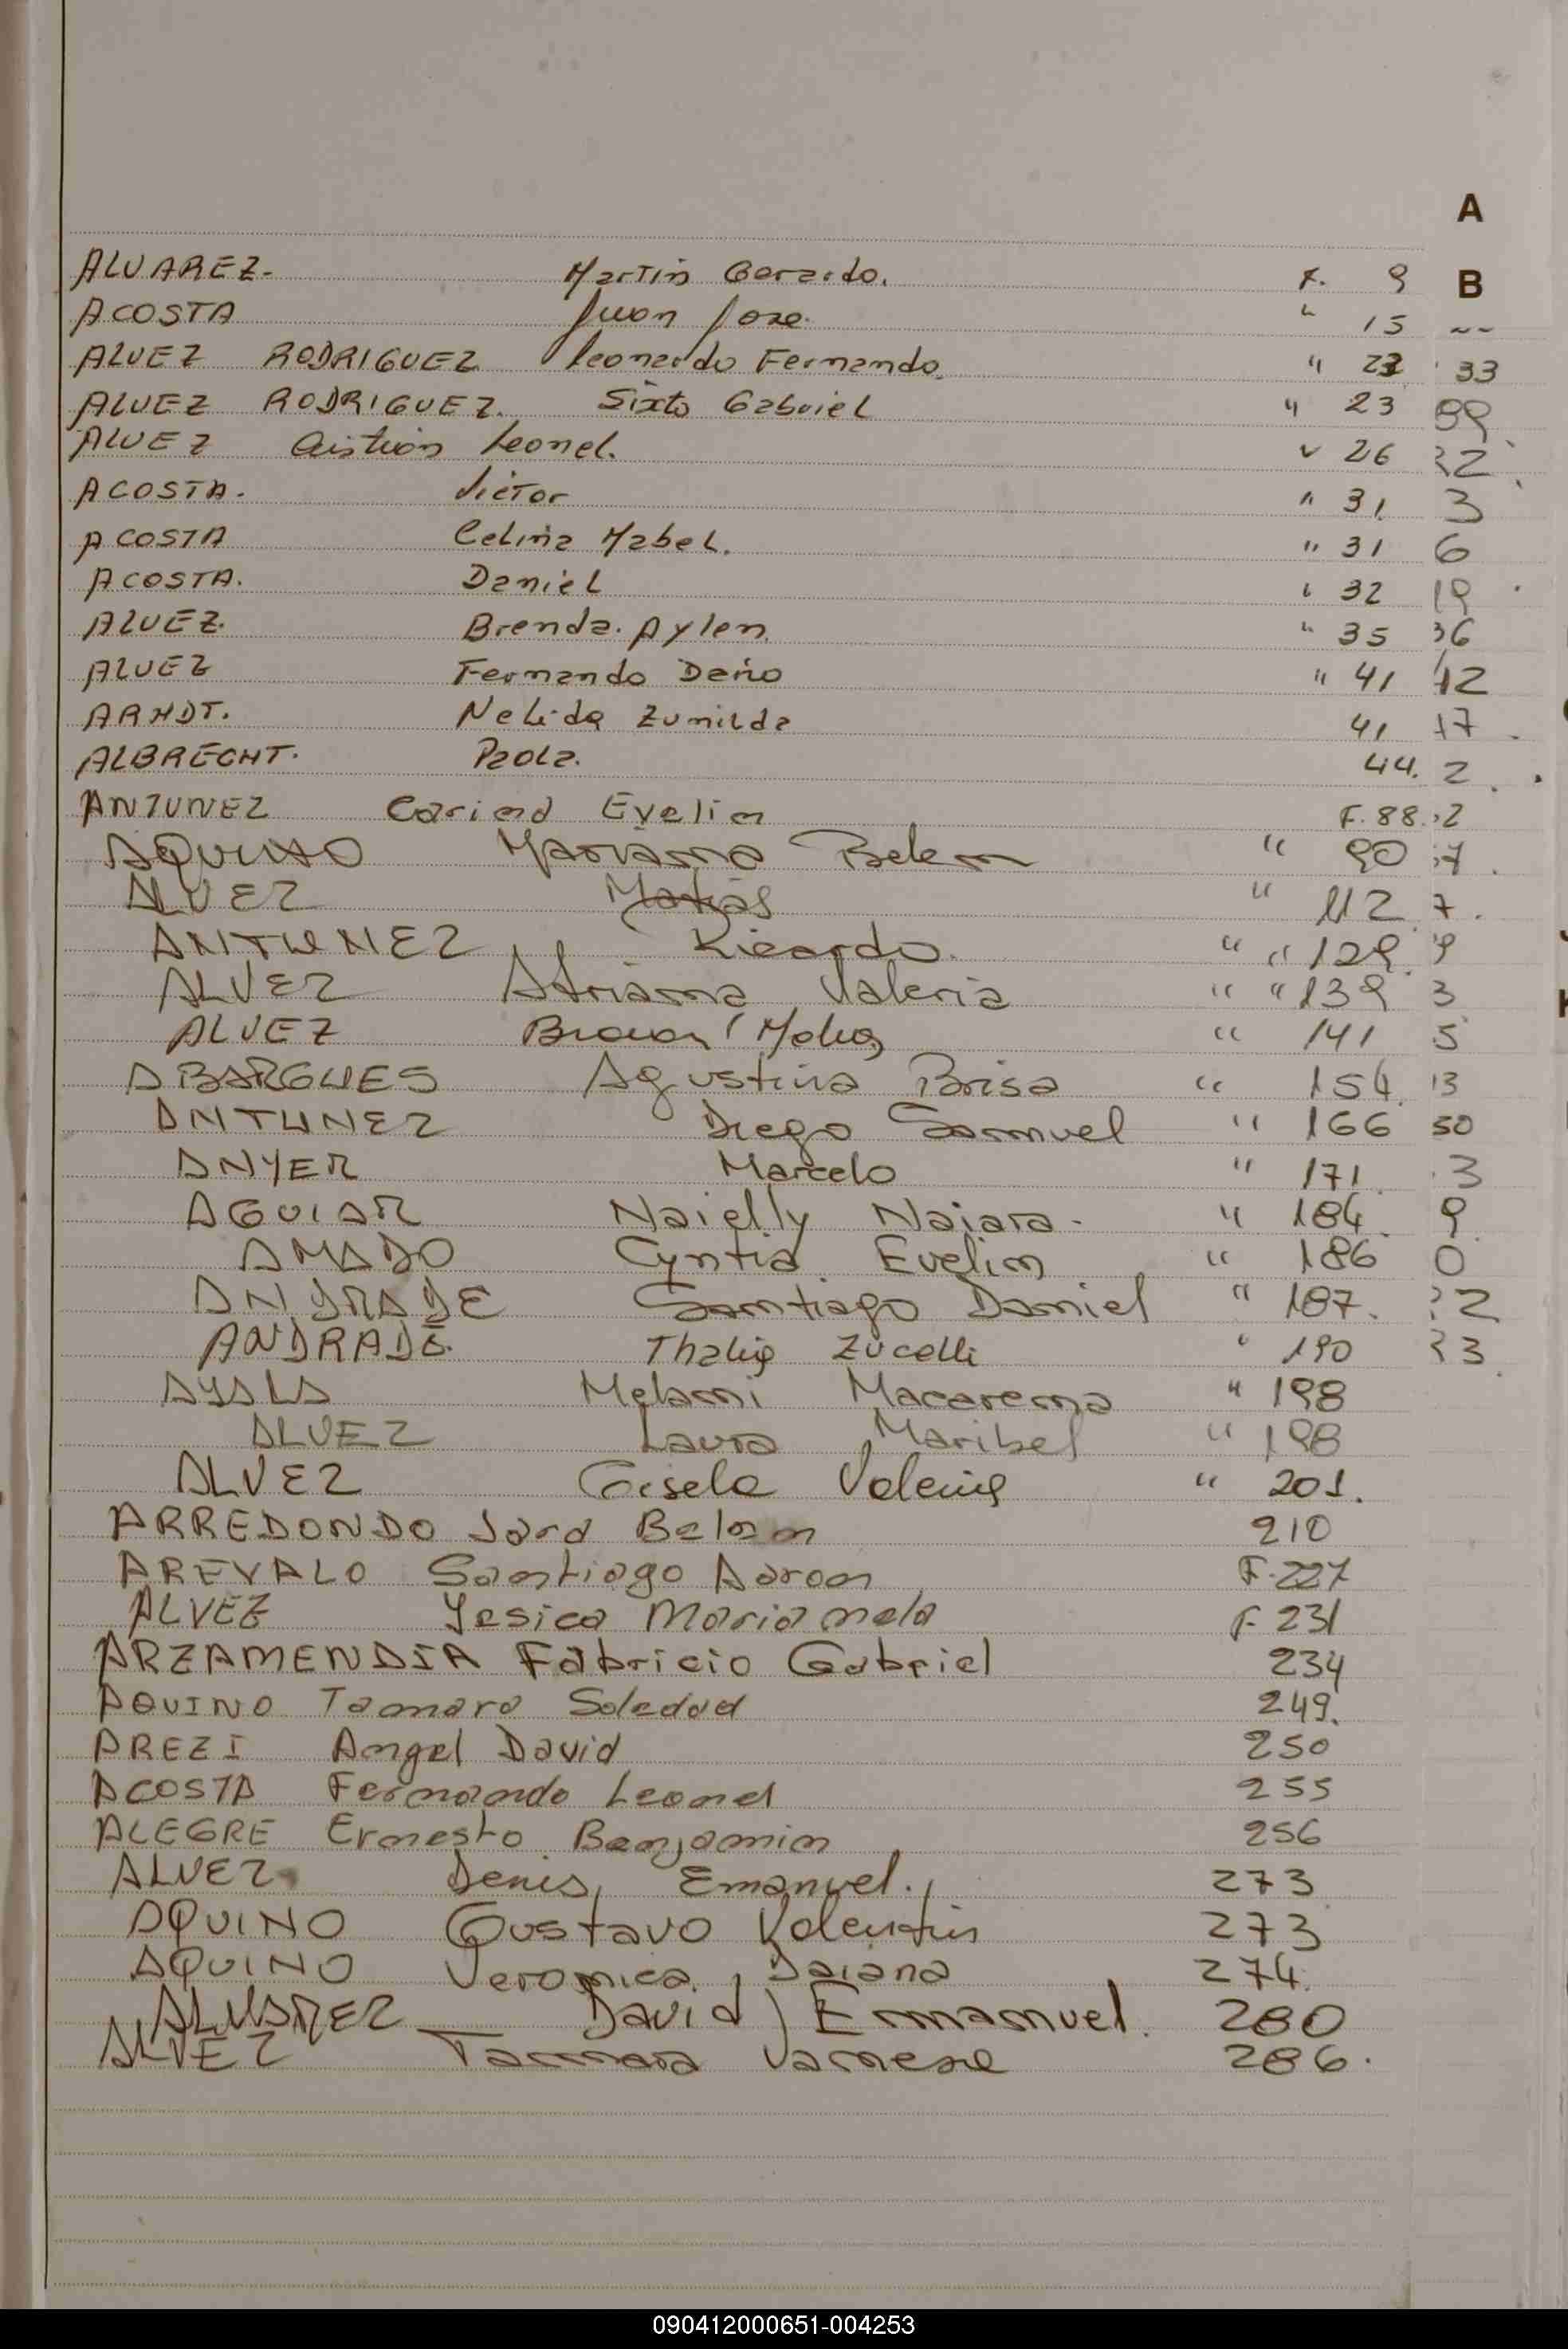 A
ALVAREZ. Martin Gerardo. F. 9
B
ACOSTA Juan Jose. " 15
ALVEZ RODRIGUEZ Leonardo Fernando. " 22 33
ALVEZ RODRIGUEZ. Sixto Gabriel " 23 99
ALVEZ Cistian Leonel. " 26 22
ACOSTA. Victor " 31. 3
ACOSTA Celina Mabel. " 31 6
ACOSTA. Daniel " 32 19
ALVEZ. Brenda. Aylen. " 35 36
ALVEZ Fernando Dario " 41 12
ARNDT. Nelida Zunilda 41 17
ALBRECHT. Paola. 44. 2
ANTUNEZ Carina Evelin F. 88. 2
AQUINO Mariana Belen " 90 7
ALVEZ Matias " 112 7
ANTUNEZ Ricardo. " " 129 9
ALVEZ Adriana Valeria " " 139 3
ALVEZ Braian " 141 5
ABARGUES Agustina Brisa " 154 13
ANTUNEZ Diego Samuel " 166 50
ANYER Marcelo " 171 3
AGUIAR Naielly Naiara. " 184 9
AMADO Cyntia Evelin " 186 0
ANDRADE Santiago Daniel " 187. 2
ANDRADE. Thalia Zucelli " 190 3
AYALA Melani Macarena " 198
ALVEZ Laura Maribel " 198
ALVEZ Gisela Valeria " 201.
ARREDONDO Sara Belen 210
AREVALO Santiago Aaron F. 227
ALVEZ Yesica Marianela F. 231
ARZAMENDIA Fabricio Gabriel 234
AQUINO Tamara Soledad 249.
AREZI Angel David 250
ACOSTA Fernando Leonel 255
ALEGRE Ernesto Benjamin 256
ALVEZ Denis, Emanuel. 273
AQUINO Gustavo Valentin 273
AQUINO Veronica, Daiana 274.
ALVAREZ David Emmanuel. 280
ALVEZ Tamara Vanese 286.
090412000651-004253